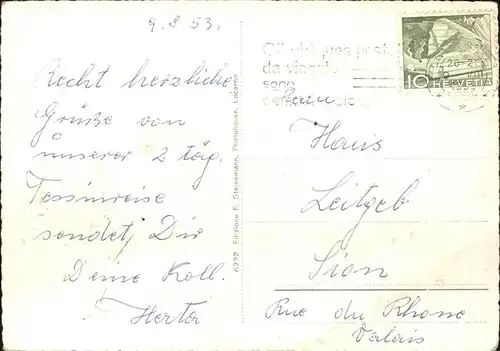 9.8.53.
Recht herzliche
Grüße von
unserer 2 täg.
Tessinreise
sendet Dir
Deine Koll.
Herta
6232 Edizione E. Steinemann, Photohouse, Locarno
da viaggi
sono
10
HELVETIA
Herrn
Hans
Leitgeb
Sion
Rue du Rhone
Valais